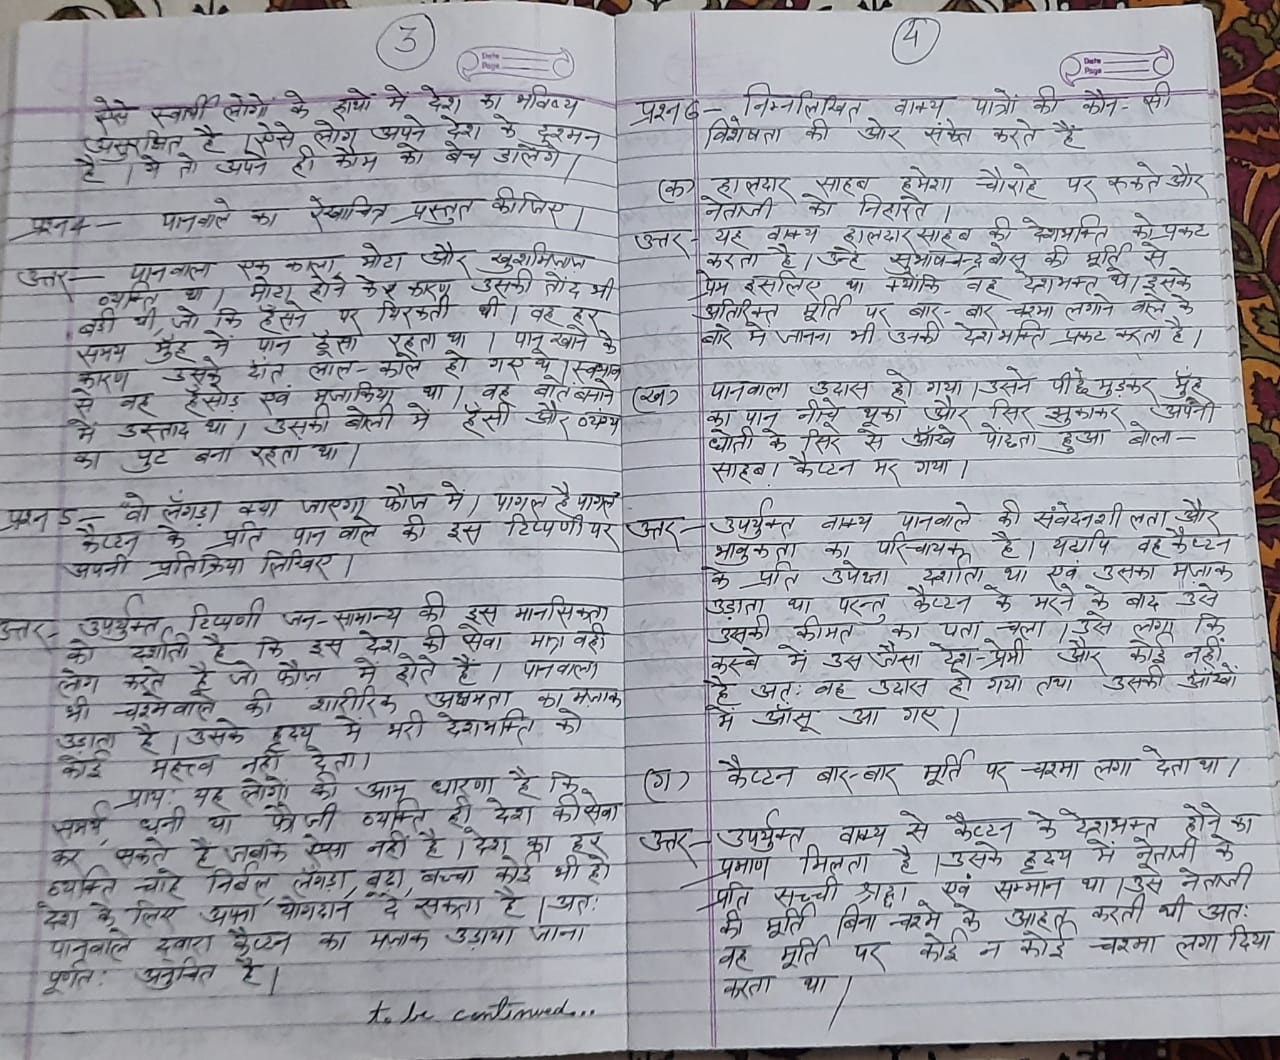 3
Date
Page
ऐसे स्वार्थी लोगों के हाथों में देश का भविष्य
असुरक्षित है। ऐसे लोग अपने देश के दुश्मन
है। ये तो अपने ही कौम को बेच डालेंगे।
प्रश्न 4 - पानवाले का रेखाचित्र प्रस्तुत कीजिए।
उत्तर - पानवाला एक काला, मोटा और खुशमिजाज
व्यक्ति था। मोटा होने के कारण उसकी तोंद भी
बड़ी थी, जो कि हँसने पर थिरकती थी। वह हर
समय मुँह में पान ठूँसा रहता था। पान खाने के
कारण उसके दाँत लाल-काले हो गए थे। स्वभाव
से वह हँसोड़ एवं मजाकिया था। वह बातें बनाने
में उस्ताद था। उसकी बोली में हँसी और व्यंग्य
का पुट बना रहता था।
प्रश्न 5 - वो लँगड़ा क्या जाएगा फौज में। पागल है पागल
कैप्टन के प्रति पान वाले की इस टिप्पणी पर
अपनी प्रतिक्रिया लिखिए।
उत्तर - उपर्युक्त टिप्पणी जन-सामान्य की इस मानसिकता
को दर्शाती है कि इस देश की सेवा मात्र वही
लोग करते हैं जो फौज में होते हैं। पानवाला
भी चश्मेवाले की शारीरिक अक्षमता का मजाक
उड़ाता है। उसके हृदय में भरी देशभक्ति को
कोई महत्त्व नहीं देता।
प्रायः यह लोगों की आम धारणा है कि
समर्थ, धनी या फौजी व्यक्ति ही देश की सेवा
कर सकते है जबकि ऐसा नहीं है। देश का हर
व्यक्ति चाहे निर्बल, लँगड़ा, बूढ़ा, बच्चा कोई भी हो
देश के लिए अपना योगदान दे सकता है। अतः
पानवाले द्वारा कैप्टन का मजाक उड़ाया जाना
पूर्णतः अनुचित है।
to be continued...
4
Date
Page
प्रश्न 6 - निम्नलिखित वाक्य पात्रों की कौन-सी
विशेषता की ओर संकेत करते हैं
(क) हालदार साहब हमेशा चौराहे पर रुकते और
नेताजी को निहारते।
उत्तर - यह वाक्य हालदार साहब की देशभक्ति को प्रकट
करता है। उन्हें सुभाषचन्द्र बोस की मूर्ति से
प्रेम इसलिए था क्योंकि वह देशभक्त थे। इसके
अतिरिक्त मूर्ति पर बार-बार चश्मा लगाने वाले के
बारे में जानना भी उनकी देशभक्ति प्रकट करता है।
(ख) पानवाला उदास हो गया। उसने पीछे मुड़कर मुँह
का पान नीचे थूका और सिर झुकाकर अपनी
धोती के सिरे से आँखे पोंछता हुआ बोला -
साहब! कैप्टन मर गया।
उत्तर - उपर्युक्त वाक्य पानवाले की संवेदनशीलता और
भावुकता का परिचायक है। यद्यपि वह कैप्टन
के प्रति उपेक्षा दर्शाता था एवं उसका मजाक
उड़ाता था परन्तु कैप्टन के मरने के बाद उसे
उसकी कीमत का पता चला। उसे लगा कि
कस्बे में उस जैसा देश-प्रेमी और कोई नहीं
है अतः वह उदास हो गया तथा उसकी आँखों
में आँसू आ गए।
(ग) कैप्टन बार-बार मूर्ति पर चश्मा लगा देता था।
उत्तर - उपर्युक्त वाक्य से कैप्टन के देशभक्त होने का
प्रमाण मिलता है। उसके हृदय में नेताजी के
प्रति सच्ची श्रद्धा एवं सम्मान था। उसे नेताजी
की मूर्ति बिना चश्मे के आहत करती थी अतः
वह मूर्ति पर कोई न कोई चश्मा लगा दिया
करता था।